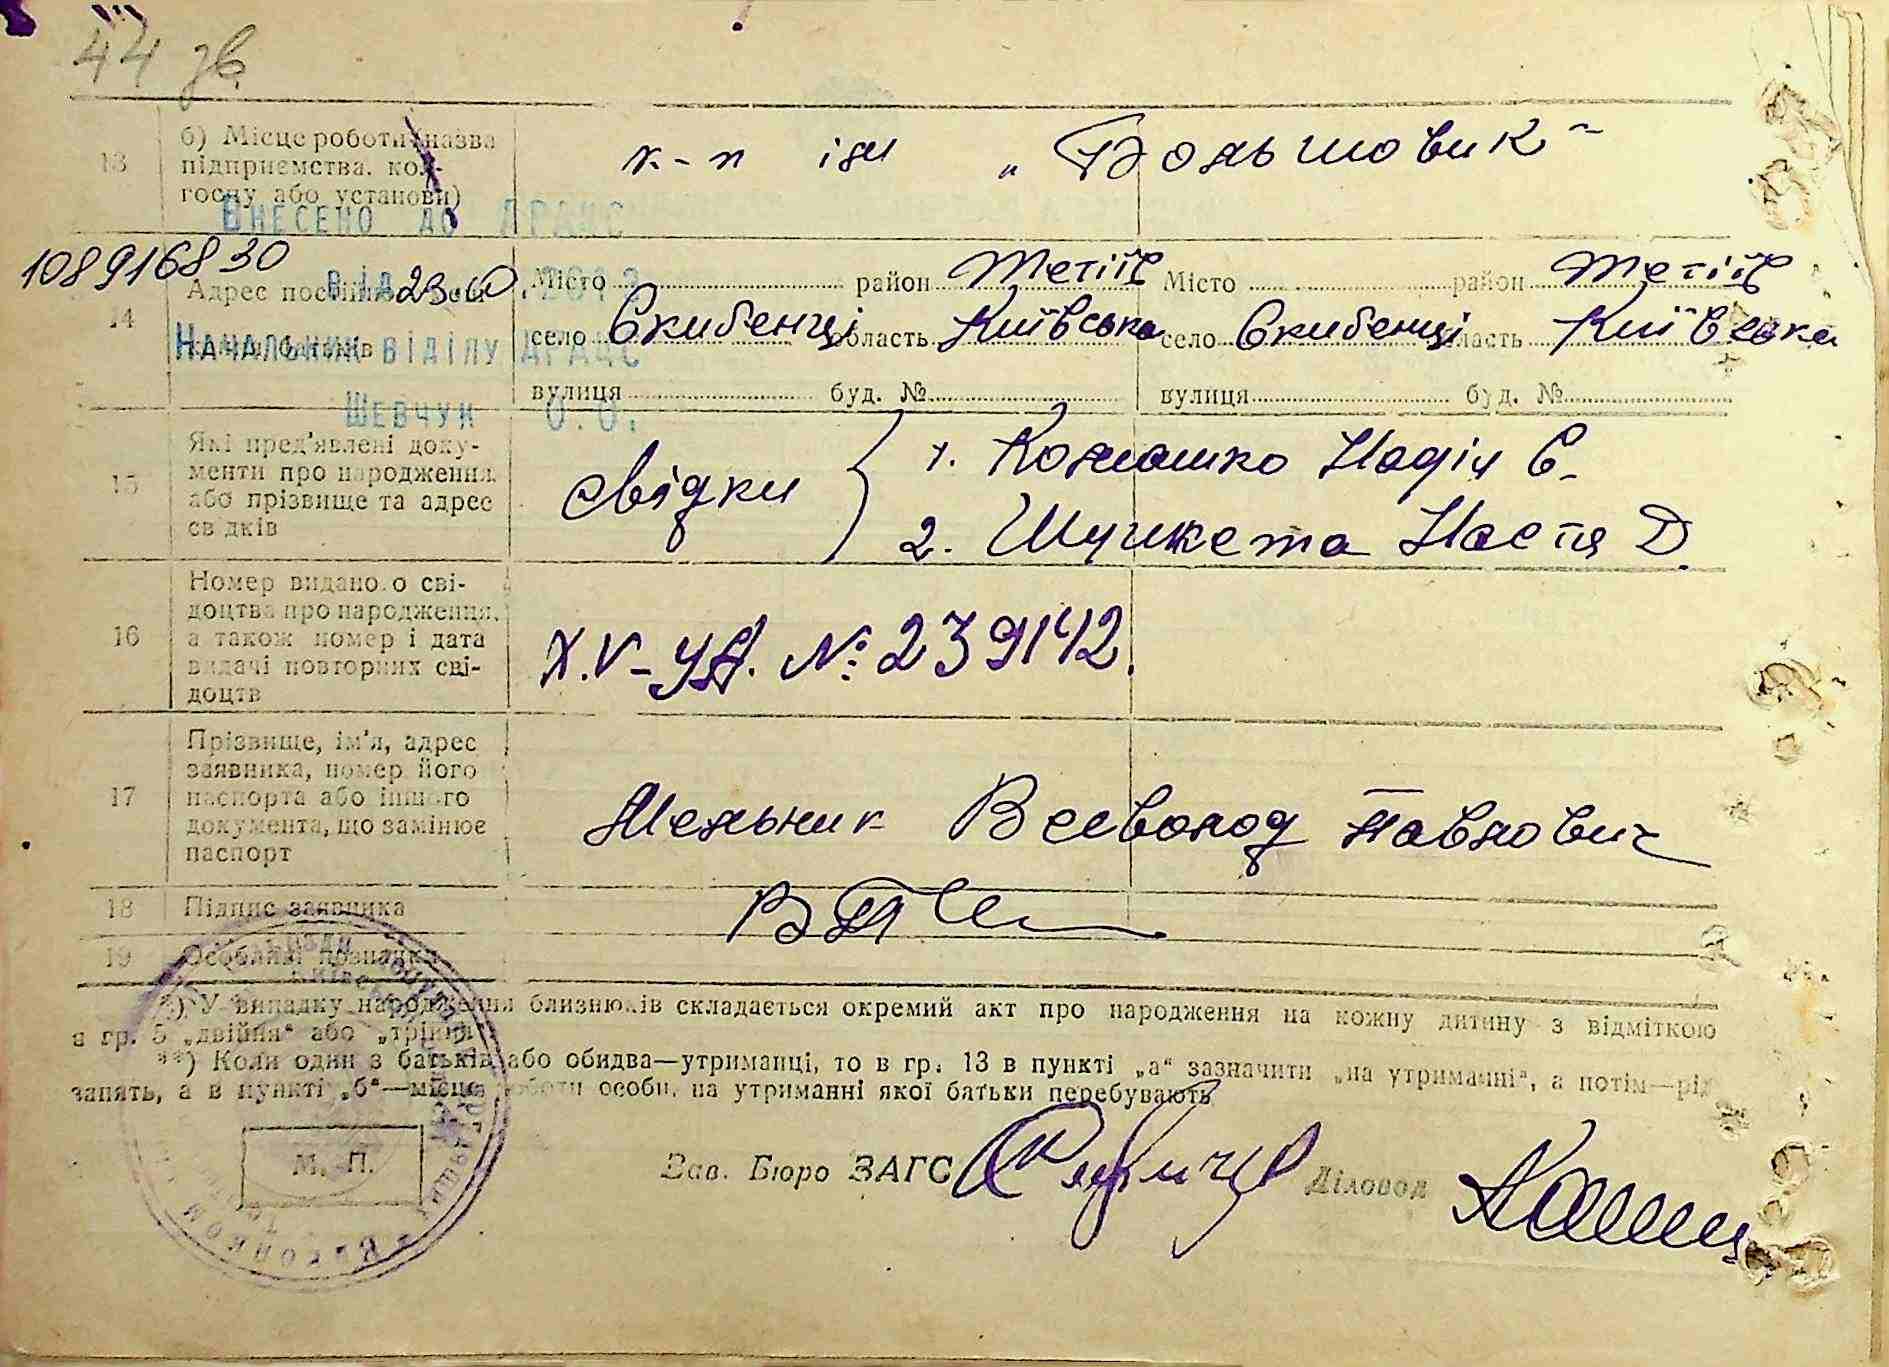 44 зв.
13 б) Місце роботи (назва
підприємства, кол-
госпу або установи)
к-п ім „Большовик"
Внесено до ДРАЦС
108916830
від 23.10.2013
14 Адрес постійного
Місто район Тетіїв Місто район Тетіїв
село Скибенці область Київська село Скибенці область Київська
Начальник відділу ДРАЦС
вулиця буд. № вулиця буд. №
Шевчук О.О.
15 Які пред'явлені доку-
менти про народження,
або прізвище та адрес
свідків
свідки
1. Надія Є.
2. Настя Д.
16 Номер виданого сві-
доцтва про народження,
а також номер і дата
видачі повторних сві-
доцтв
X.V-УД. № 239142.
17 Прізвище, ім'я, адрес
заявника, номер його
паспорта або іншого
документа, що замінює
паспорт
Мельник Всеволод Павлович
18 Підпис заявника
19 Особливі позначки
*) У випадку народження близнюків складається окремий акт про народження на кожну дитину з відміткою
в гр. 5 „двійня" або „трійня"
**) Коли один з батьків або обидва—утриманці, то в гр. 13 в пункті „а" зазначити „на утриманні", а потім—рід
занять, а в пункті „б"—місце роботи особи, на утриманні якої батьки перебувають
М. П.
Зав. Бюро ЗАГС Діловод